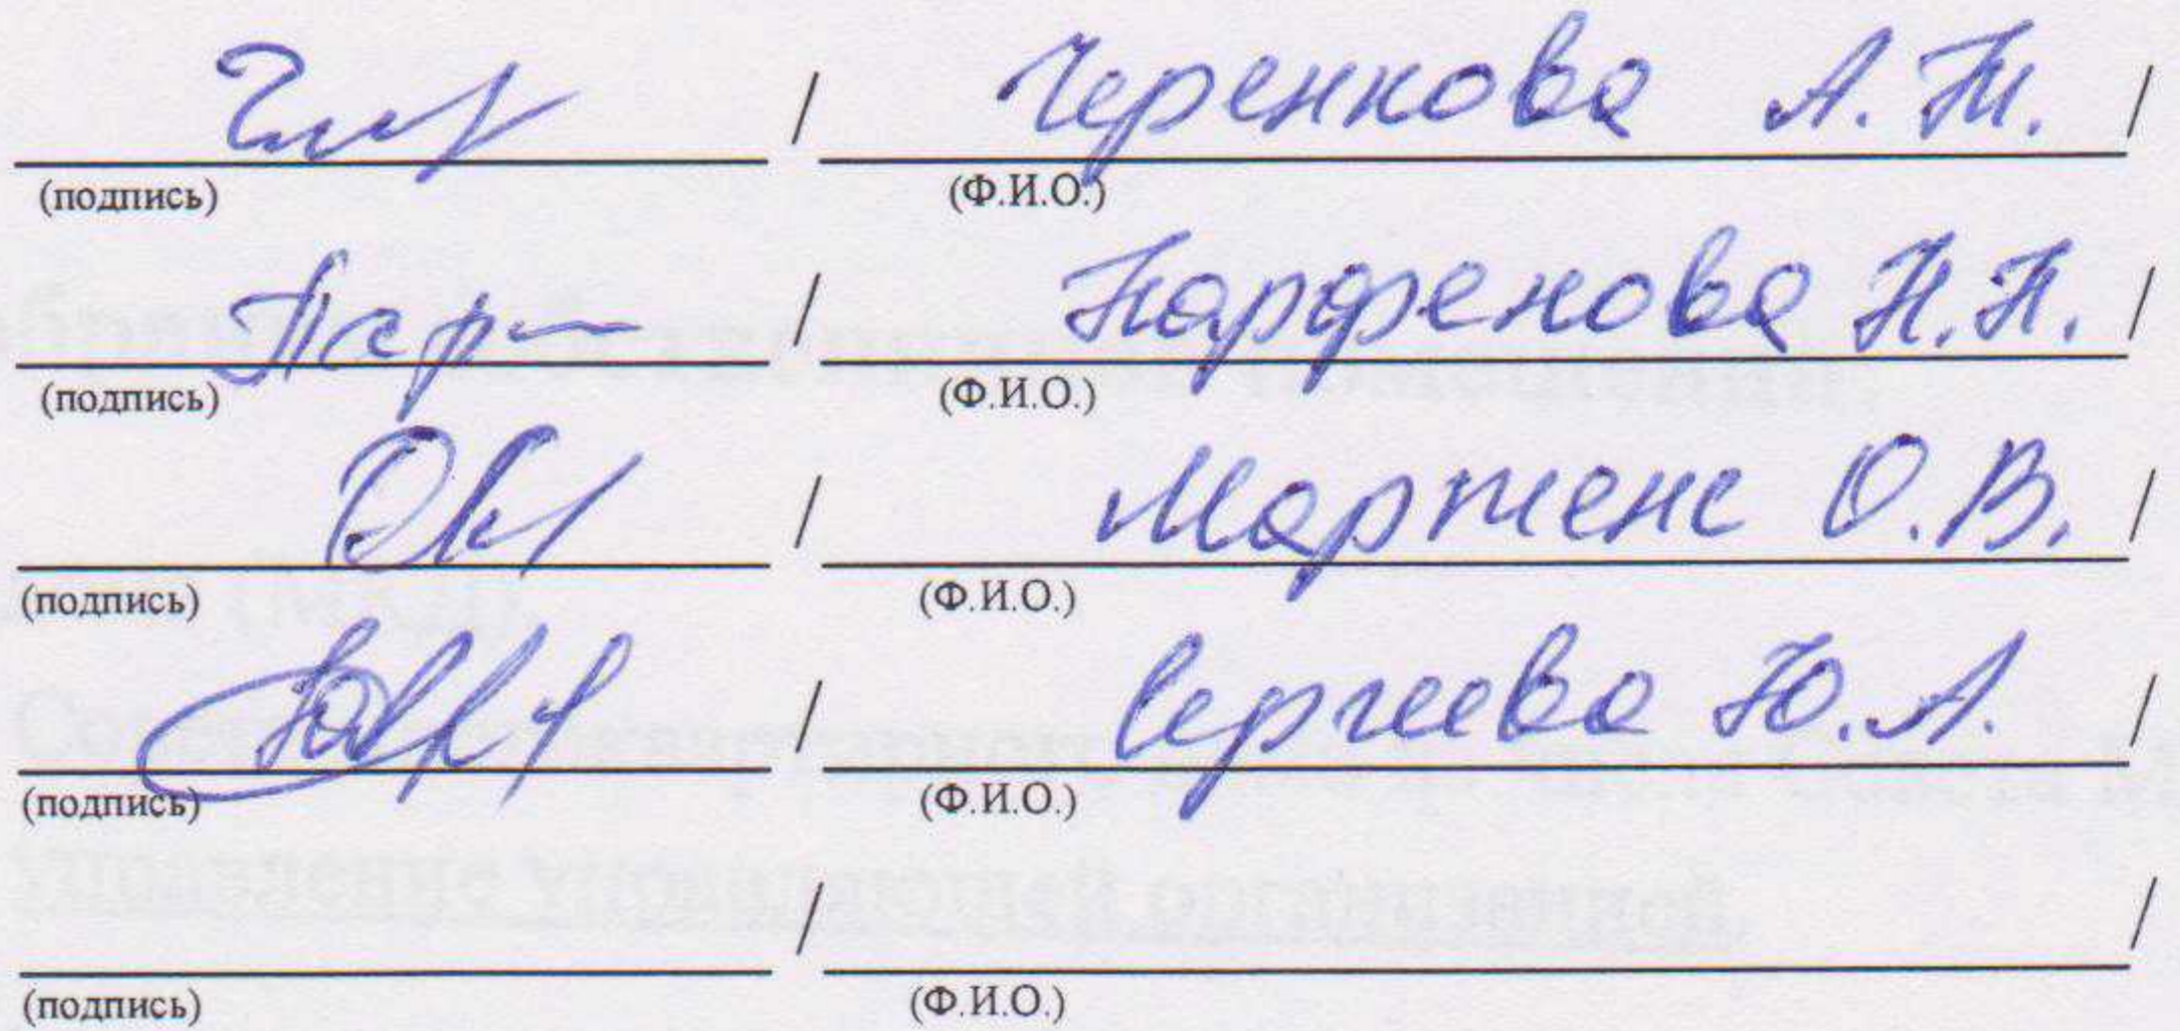 / Черенкова А. Т. /
(подпись) (Ф.И.О.)
Пар / Парфенова Н. Н. /
(подпись) (Ф.И.О.)
/ Мартенс О. В. /
(подпись) (Ф.И.О.)
/ Сергеева Ю. А. /
(подпись) (Ф.И.О.)
/ /
(подпись) (Ф.И.О.)